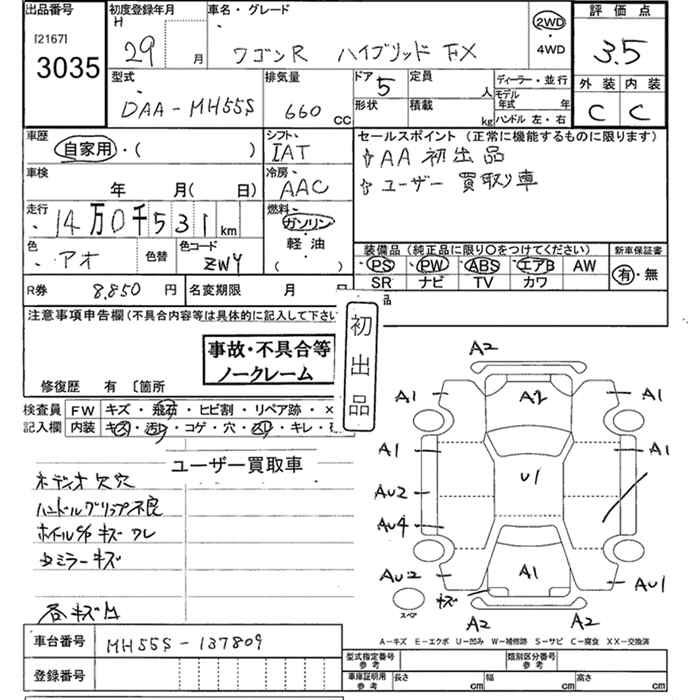 出品番号 初度登録年月 車名・グレード 評価点
[2167] H 29 月 ワゴンR ハイブリッド FX 2WD ・ 4WD 3.5
3035
型式 排気量 ドア 5 定員 人 ディーラー・並行 外装 内装
DAA-MH55S 660 cc 形状 積載 kg モデル年式 年 C C
ハンドル 左・右
車歴 シフト セールスポイント (正常に機能するものに限ります)
自家用・( ) IAT ☆AA初出品
車検 冷房 ☆ユーザー買取り車
年 月( 日) AAC
走行 燃料
14万0千531 km ガソリン
軽油
( )
色 色替 色コード
アオ ZWY
装備品 (純正品に限り〇をつけてください) 新車保証書
PS PW ABS エアB AW 有・無
SR ナビ TV カワ
R券 8,850 円 名変期限 月 日 品
注意事項申告欄 (不具合内容等は具体的に記入して下さい
初出品
事故・不具合等
ノークレーム
修復歴 有 〔箇所
検査員 FW キズ・飛石・ヒビ割・リペア跡・×
記入欄 内装 キズ・汚レ・コゲ・穴・スリ・キレ・
ユーザー買取車
オーディオ欠穴
ハンドルグリップ不良
ホイルC/P キズ ワレ
ミラーキズ
各キズ凹
A2
A1 A2 A1
A1 A1
AU2 U1
AU4
AU2 A1 AU1
キズ
スペア
A2 A2
A-キズ E-エクボ U-凹み W-補修跡 S-サビ C-腐食 XX-交換済
車台番号 MH55S-137809
登録番号
型式指定番号 参考 類別区分番号 参考
車庫証明用 参考 長さ cm 幅 cm 高さ cm